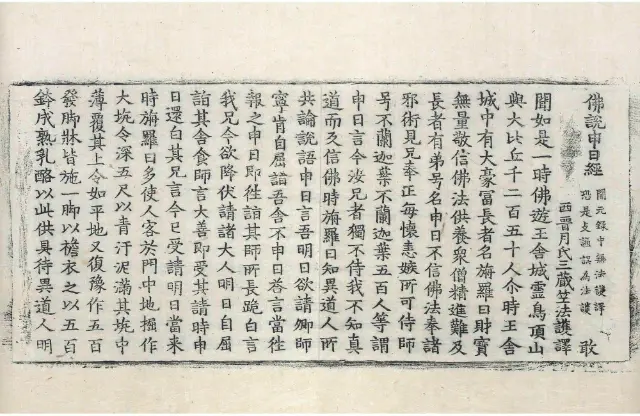 佛說申日經
開元錄中無法護譯
恐是支謙誤為法護
西晉月氏三藏竺法護譯 敢
聞如是一時佛遊王舍城靈鳥頂山
與大比丘千二百五十人尒時王舍
城中有大豪冨長者名旃羅日財寶
無量敬信佛法供養衆僧精進難及
長者有弟号名申日不信佛法奉諸
邪術見兄奉正每懷恚嫉所可侍師
号不蘭迦葉不蘭迦葉五百人等謂
申日言今汝兄者獨不侍我不知真
道而反信佛時旃羅日知異道人所
共論說語申日言吾明日欲請卿師
寧肯自屈詣吾舍不申日荅言當往
報之申日即往詣其師所長跪白言
我兄今欲降伏請諸大人明日自屈
詣其舍食師言大善即受其請時申
日還白其兄言今已受請明日當来
時旃羅日多使人客於門中地掘作
大坑令深五尺以青汙泥滿其坑中
薄覆其上令如平地又復豫作五百
發脚牀皆施一脚以襜衣之以五百
鉢成熟乳酪以此供具待異道人明